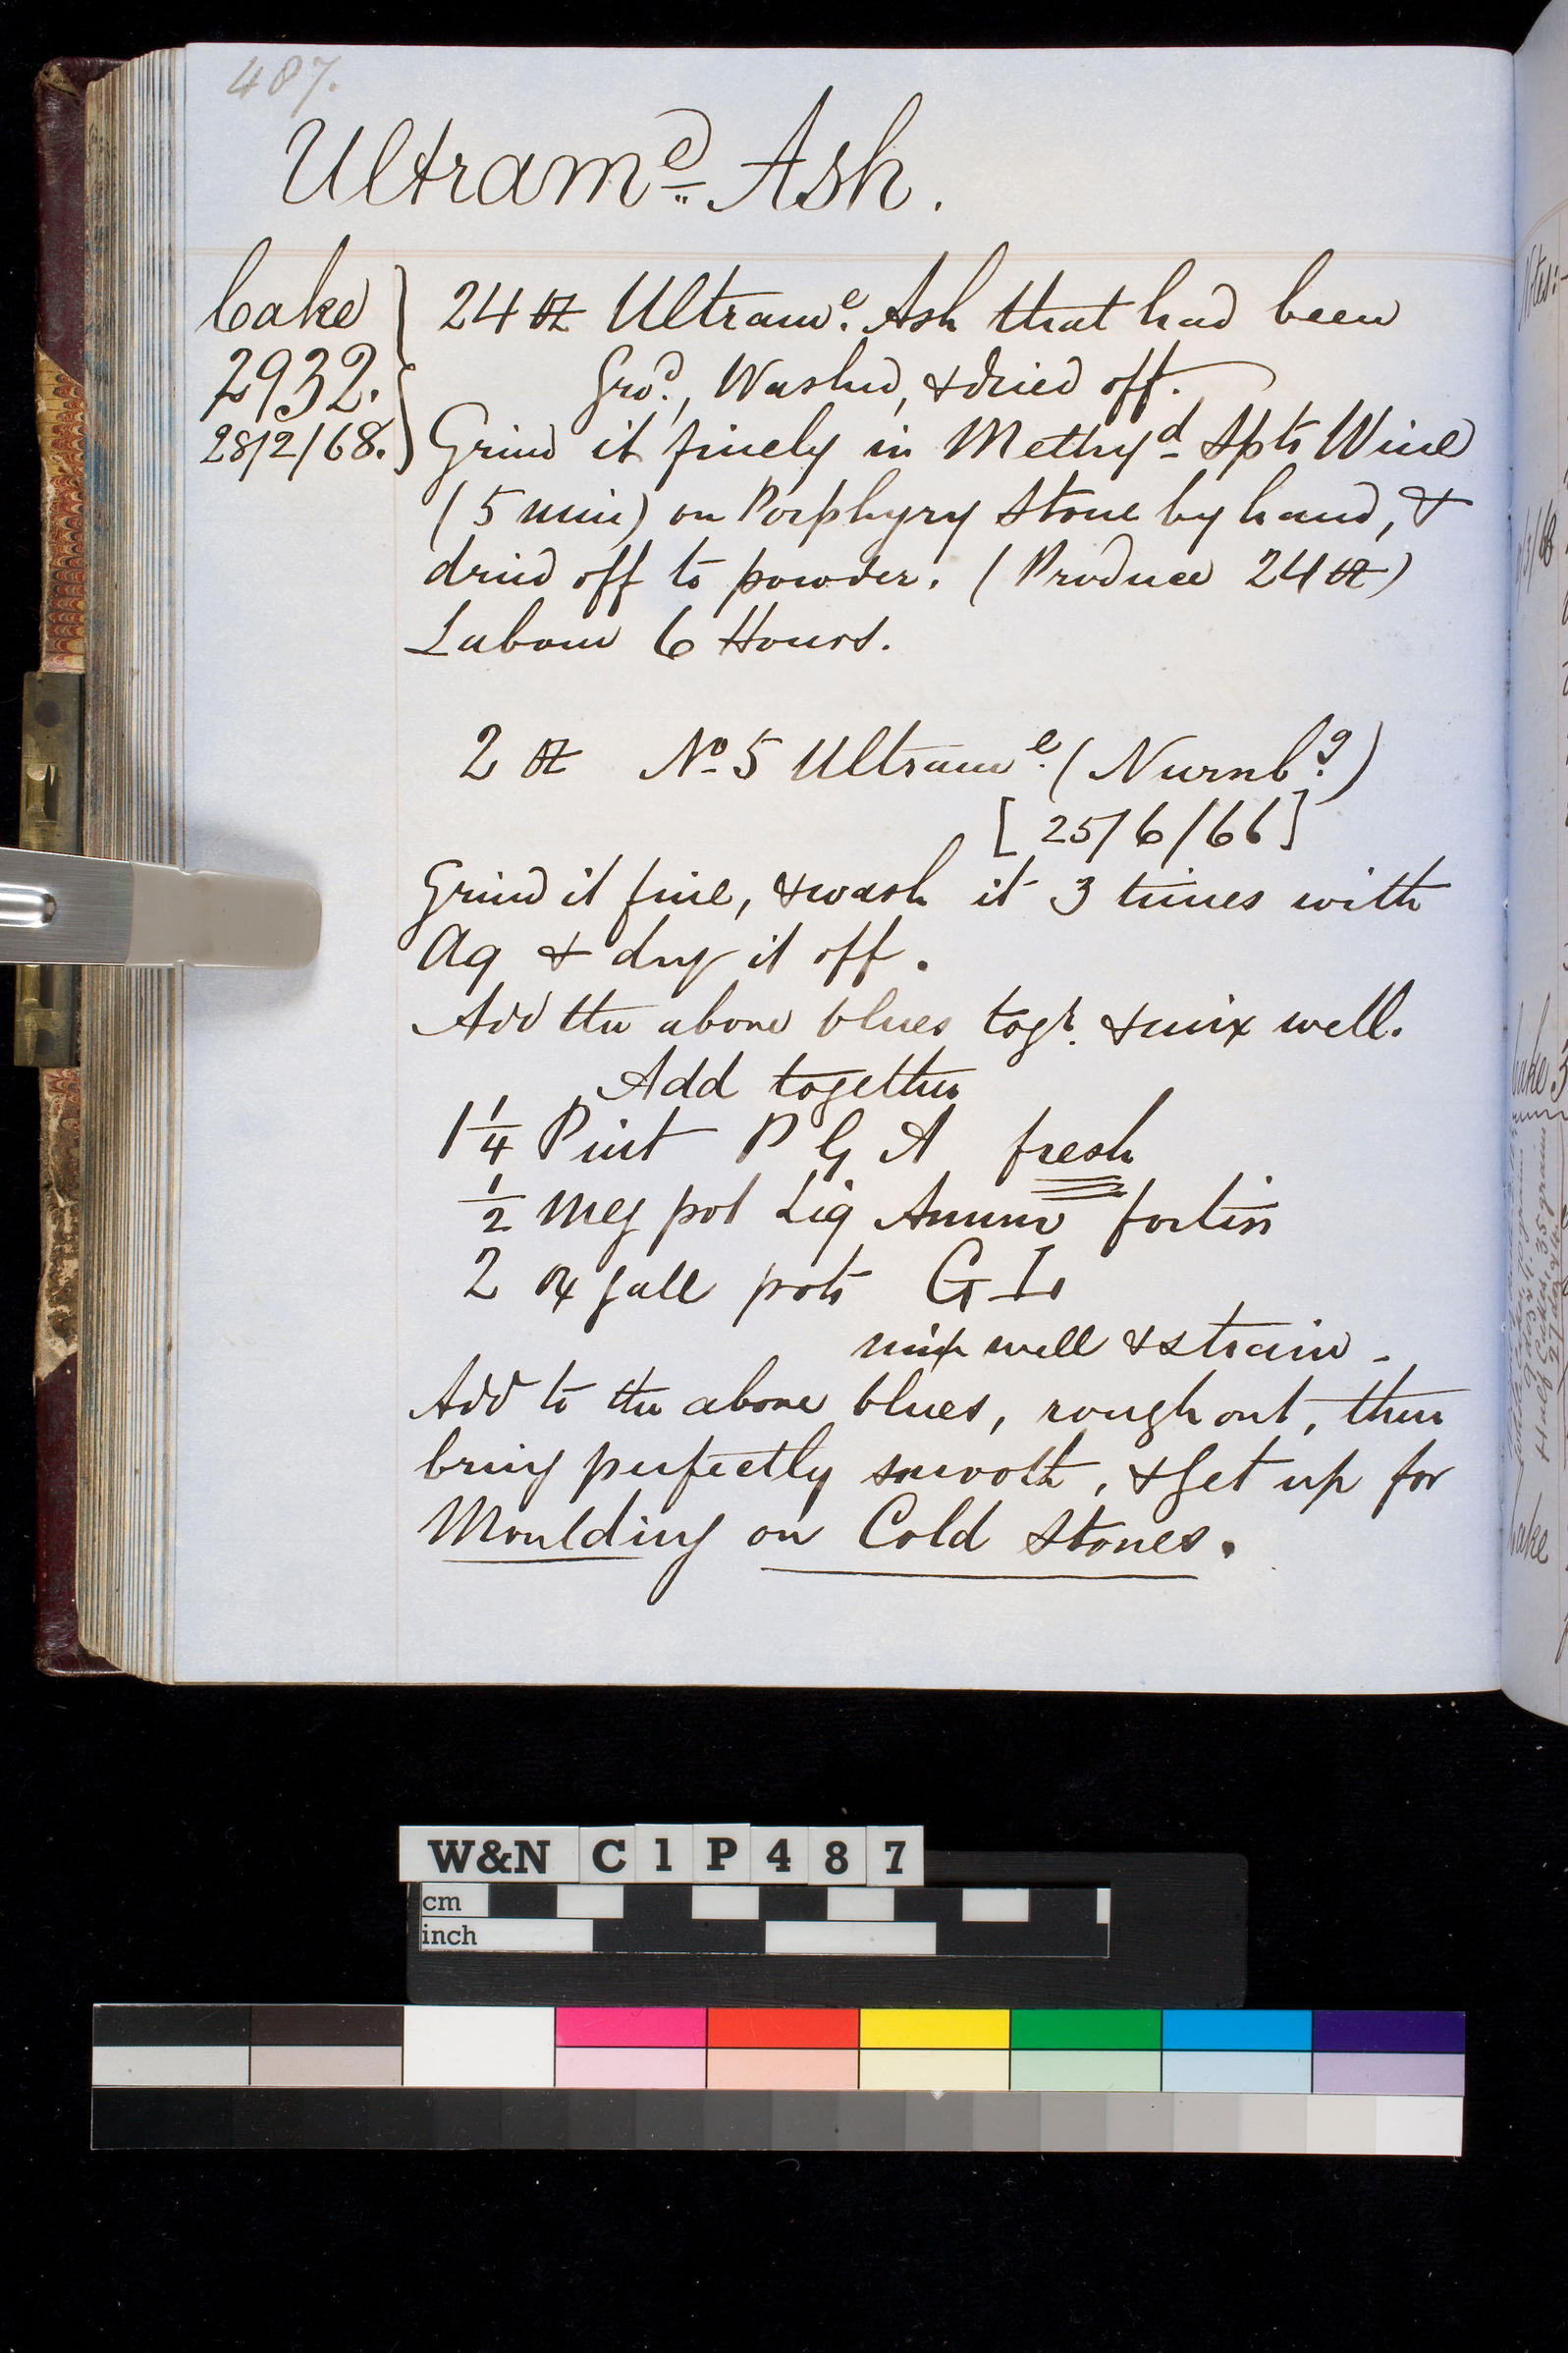 487.
Ultramᵉ Ash.
Cake
2932.
28/2/68.
24 ℔ Ultramᵉ. Ash that had been
Groᵈ., Washed, & dried off.
Grind it finely in Methyᵈ Spts Wine
(5 min) on Porphyry Stone by hand, &
dried off to powder. (Produce 24 ℔)
Labour 6 Hours.
2 ℔ Nº 5 Ultramᵉ. (Nurnbᵍ.)
[25/6/66]
Grind it fine, & wash it 3 times with
Aq & dry it off.
Add the above blues togʳ. & mix well.
Add together
1¼ Pint P G A fresh
½ meg pot Liq Ammo fortis
2 oz gall pots G L
mix well & strain.
Add to the above blues, rough out, then
bring perfectly smooth, & get up for
Moulding on Cold Stones.
Notes:-
Cake 3
Cake
W&N C1P487
cm
inch